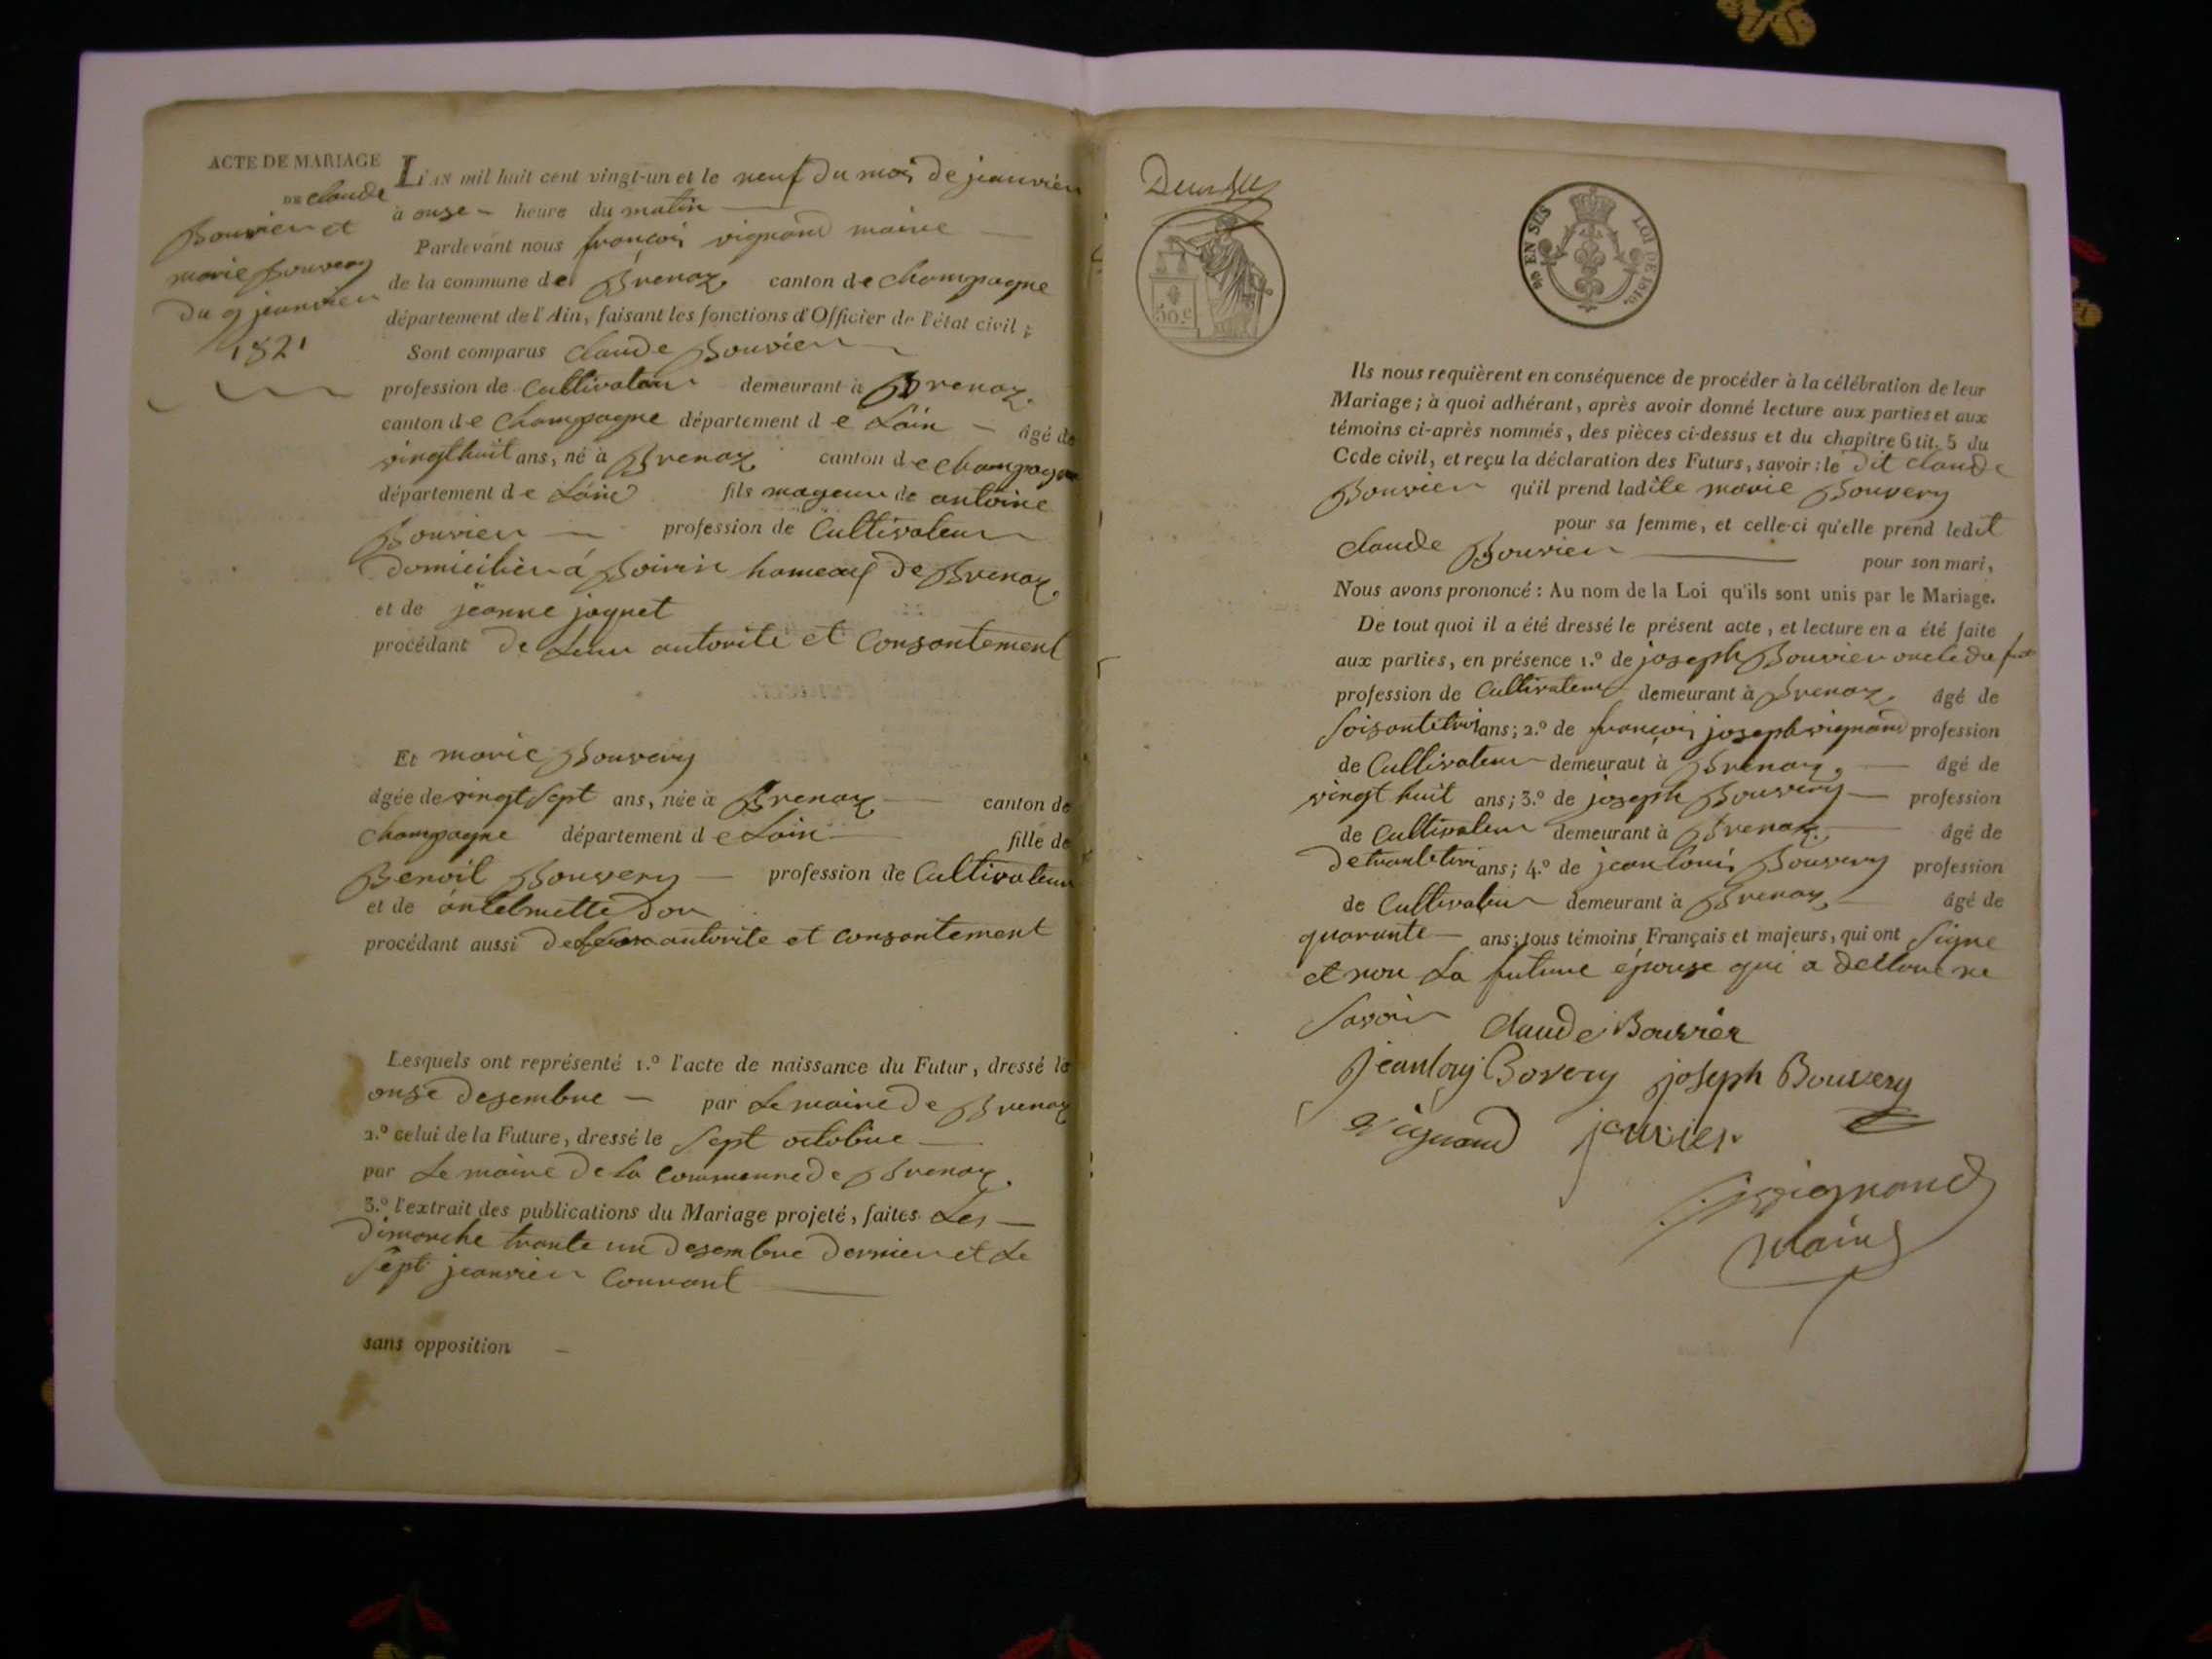 ACTE DE MARIAGE
DE claude
Bouvier et
marie Bouvery
Du 9 jeanvier
1821
L'AN mil huit cent vingt-un et le neuf Du mois De jeanvier
à onse heure du matin
Pardevant nous françois vignand maire
de la commune de Brenaz canton de Champagne
département de l'Ain, faisant les fonctions d'Officier de l'état civil ;
Sont comparus Claude Bouvier
profession de Cultivateur demeurant à Brenaz
canton de Champagne département de Lain âgé de
vingthuit ans, né à Brenaz canton de Champagne
département de Lain fils mageur de antoine
Bouvier profession de Cultivateur
Domicilier á Boirin hameaux De Brenaz
et de jeanne jaquet
procédant De Leur autorite et Consantement
Et marie Bouvery
âgée de vingt sept ans, née à Brenaz canton de
Champagne département de Lain fille de
Benoit Bouvery profession de Cultivateur
et de antelmette Don
procédant aussi De autorite et consantement
Lesquels ont représenté 1.º l'acte de naissance du Futur, dressé le
onse Desembre par Le maire De Brenaz
2.º celui de la Future, dressé le Sept octobre
par Le maire De La Commune De Brenaz
3.º l'extrait des publications du Mariage projeté, faites Les
Dimanche trante un Desembre Dernier et Le
Sept jeanvier Courant
sans opposition
50.c
EN SUS
LOI DE 1816.
Ils nous requièrent en conséquence de procéder à la célébration de leur
Mariage ; à quoi adhérant, après avoir donné lecture aux parties et aux
témoins ci-après nommés, des pièces ci-dessus et du chapitre 6 tit. 5 du
Code civil, et reçu la déclaration des Futurs, savoir : le Dit Claude
Bouvier qu'il prend ladite marie Bouvery
pour sa femme, et celle-ci qu'elle prend ledit
Claude Bouvier
pour son mari,
Nous avons prononcé : Au nom de la Loi qu'ils sont unis par le Mariage.
De tout quoi il a été dressé le présent acte, et lecture en a été faite
aux parties, en présence 1.º de joseph Bouvier oncle du fut
profession de Cultivateur demeurant à Brenaz âgé de
Soisantetrois ans ; 2.º de françois joseph vignand profession
de Cultivateur demeurant à Brenaz âgé de
vingt huit ans ; 3.º de joseph Bouvery profession
de Cultivateur demeurant à Brenaz âgé de
De ans ; 4.º de jean louis Bouvery profession
de Cultivateur demeurant à Brenaz âgé de
quarante ans ; tous témoins Français et majeurs, qui ont Signe
et non La future épouse qui a Declaré ne
Savoir Claude Bouvier
Jeanloy Bovery joseph Bouvery
vignand
vignand
Maire